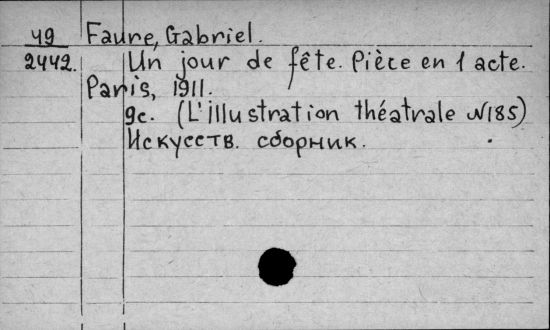 49 Faure, Gabriel.
2442. Un jour de fête. Pièce en 1 acte.
Paris, 1911.
9с. (L'illustration théatrale №185)
Искусств. сборник.